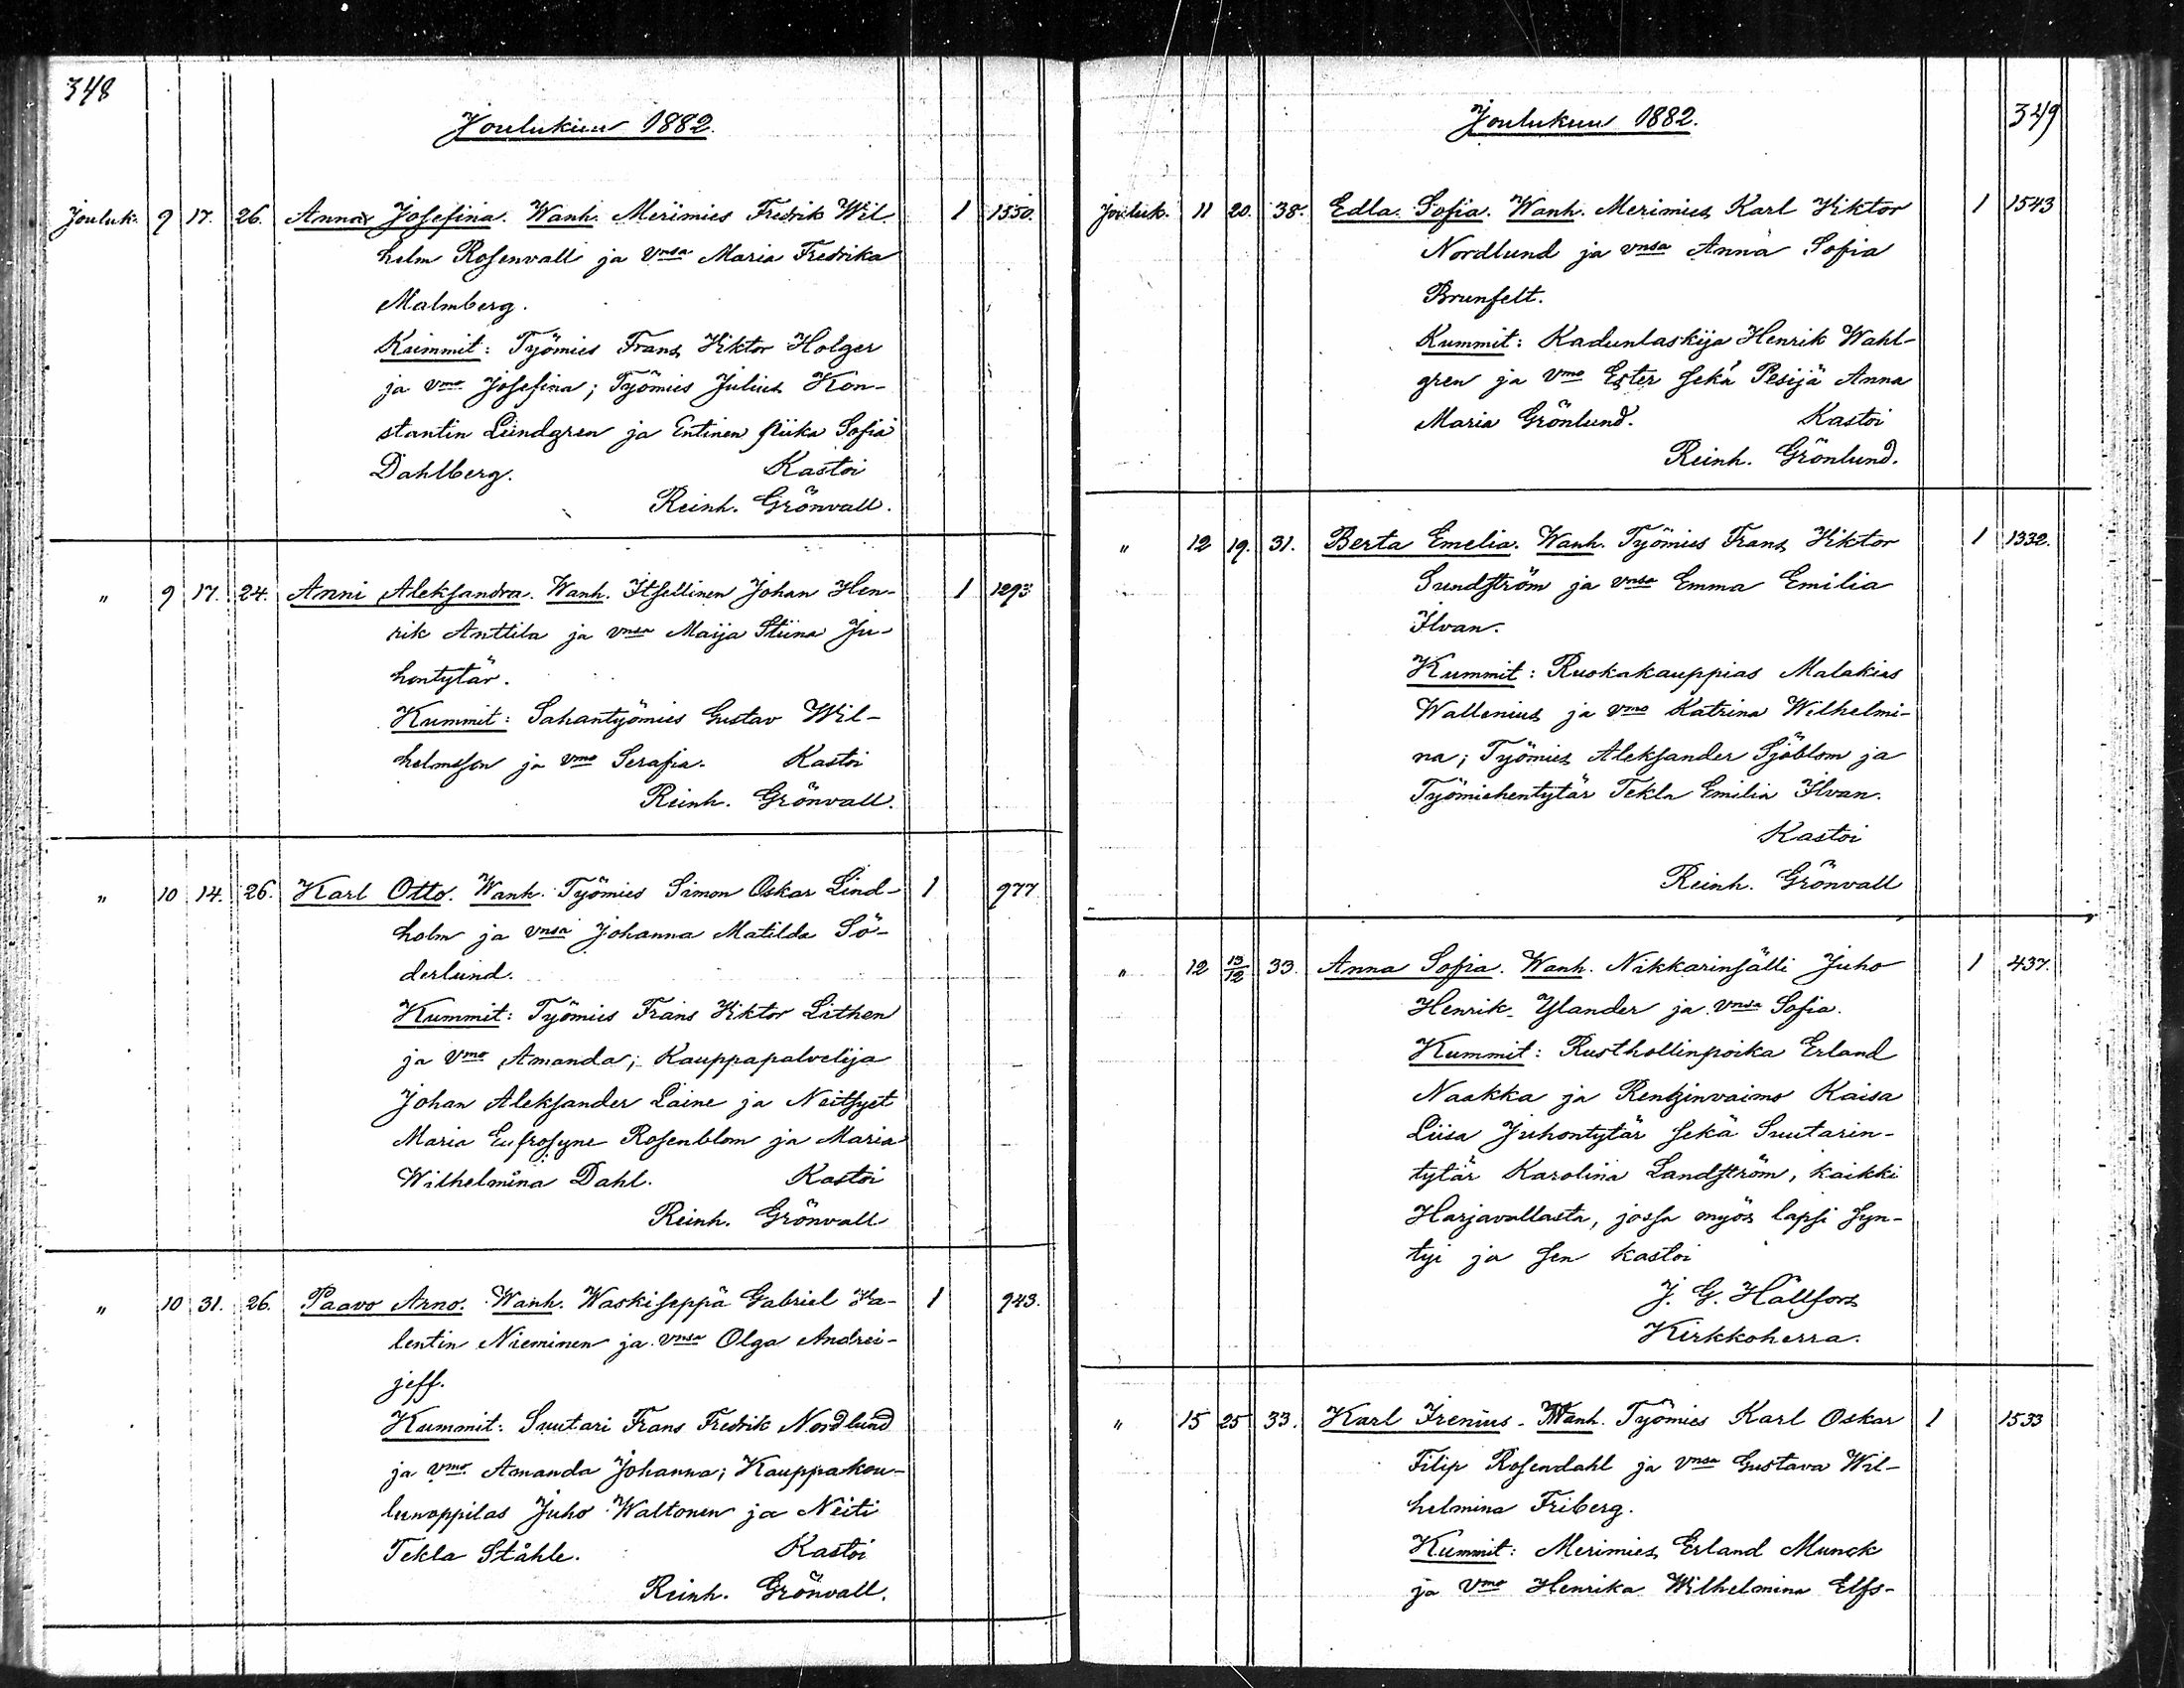 348
Joulukuu 1882.
Jouluk. 9 17. 26. Anna Josefina. Wanh. Merimies Fredrik Wil-
helm Rosenvall ja vnsa Maria Fredrika
Malmberg.
Kummit: Työmies Frans Viktor Holger
ja vmo Josefina; Työmies Julius Kon-
stantin Lindgren ja Entinen piika Sofia
Dahlberg. Kastoi
Reinh. Grönvall.
1 1350.
" 9 17. 24. Anni Aleksandra. Wanh. Itsellinen Johan Hen- 1 1293
rik Anttila ja vnsa Maija Stiina Ju-
hontytär.
Kummit: Sahantyömies Gustav Wil-
helmsson ja vmo Serafia. Kastoi
Reinh. Grönvall.
" 10 14. 26. Karl Otto. Wanh. Työmies Simon Oskar Lind- 1 977
holm ja vnsa Johanna Matilda Sö-
derlund.
Kummit: Työmies Frans Viktor Lithen
ja vmo Amanda; Kauppapalvelija
Johan Aleksander Laine ja Neitsyet
Maria Eufrosyne Rosenblom ja Maria
Wilhelmina Dahl. Kastoi
Reinh. Grönvall
" 10 31. 26. Paavo Arno. Wanh. Waskiseppä Gabriel Va- 1 943.
lentin Nieminen ja vnsa Olga Andrei-
jeff.
Kummit: Suutari Frans Fredrik Nordlund
ja vmo Amanda Johanna; Kauppakou-
lunoppilas Juho Waltonen ja Neiti
Tekla Ståhle. Kastoi
Reinh. Grönvall.
349
Joulukuu 1882.
Jouluk. 11 20. 38. Edla Sofia. Wanh. Merimies Karl Viktor 1 1543
Nordlund ja vnsa Anna Sofia
Brunfelt.
Kummit: Kadunlaskija Henrik Wahl-
gren ja vmo Ester sekä Pesijä Anna
Maria Grönlund. Kastoi
Reinh. Grönlund.
" 12 19. 31. Berta Emelia. Wanh. Työmies Frans Viktor 1 1332.
Sundström ja vnsa Emma Emilia
Ilvan.
Kummit: Ruokakauppias Malakias
Wallenius ja vmo Katrina Wilhelmi-
na; Työmies Aleksander Sjöblom ja
Työmiehentytär Tekla Emilia Ilvan.
Kastoi
Reinh. Grönvall
" 12 13/12 33. Anna Sofia. Wanh. Nikkarinsälli Juho 1 437.
Henrik Ylander ja vnsa Sofia.
Kummit: Rusthollinpoika Erland
Naakka ja Renginvaimo Kaisa
Liisa Juhontytär sekä Suutarin-
tytär Karolina Landström, kaikki
Harjavallasta, jossa myös lapsi syn-
tyi ja sen kastoi
J. G. Hällfors
Kirkkoherra.
" 15 25 33. Karl Irenius. Wanh. Työmies Karl Oskar 1 1533
Filip Rosendahl ja vnsa Gustava Wil-
helmina Friberg.
Kummit: Merimies Erland Munck
ja vmo Henrika Wilhelmina Elfs-